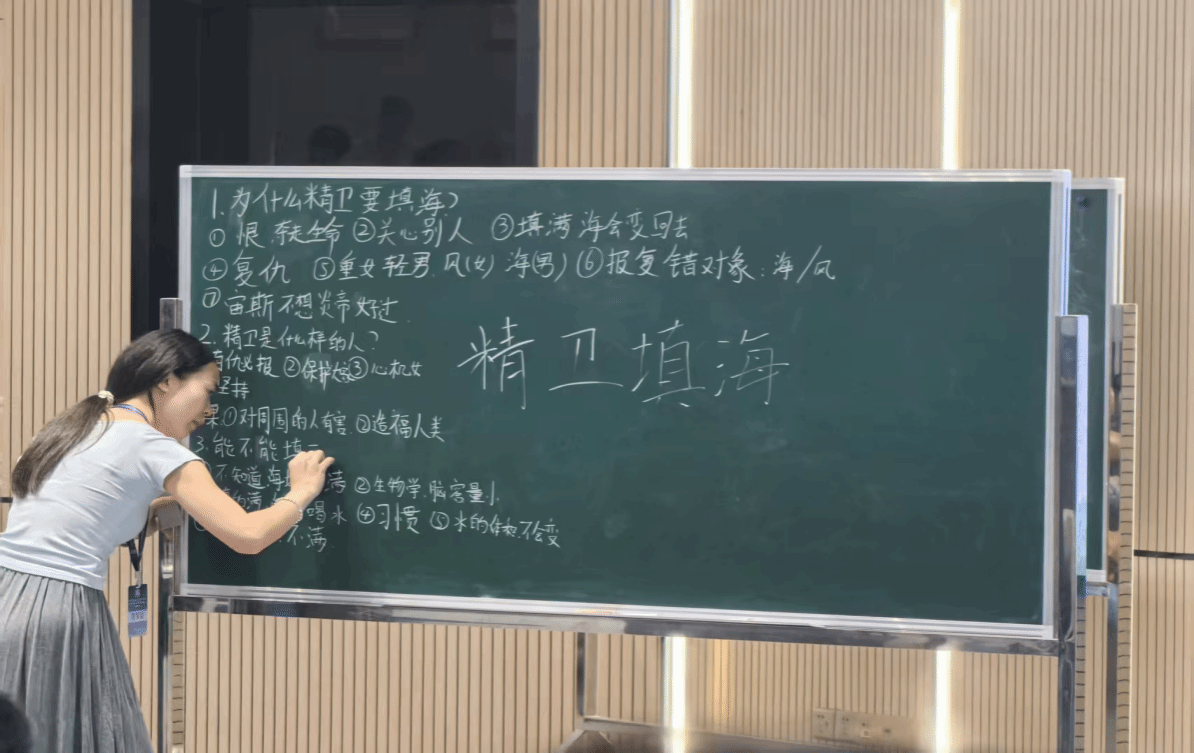 1.为什么精卫要填海?
① 恨 牵生命 ②关心别人 ③填满海会变回去
④复仇 ⑤重女轻男 风(女) 海(男) ⑥报复错对象:海/风
⑦宙斯不想炎帝好过
2.精卫是什么样的人?
有仇必报 ②保护 ③心机女
坚持
精卫填海
果①对周围的人有害 ②造福人类
3.能不能填
不知道海 满 ②生物学.脑容量小
满 喝水 ④习惯 ⑤水的体积不会变
不满